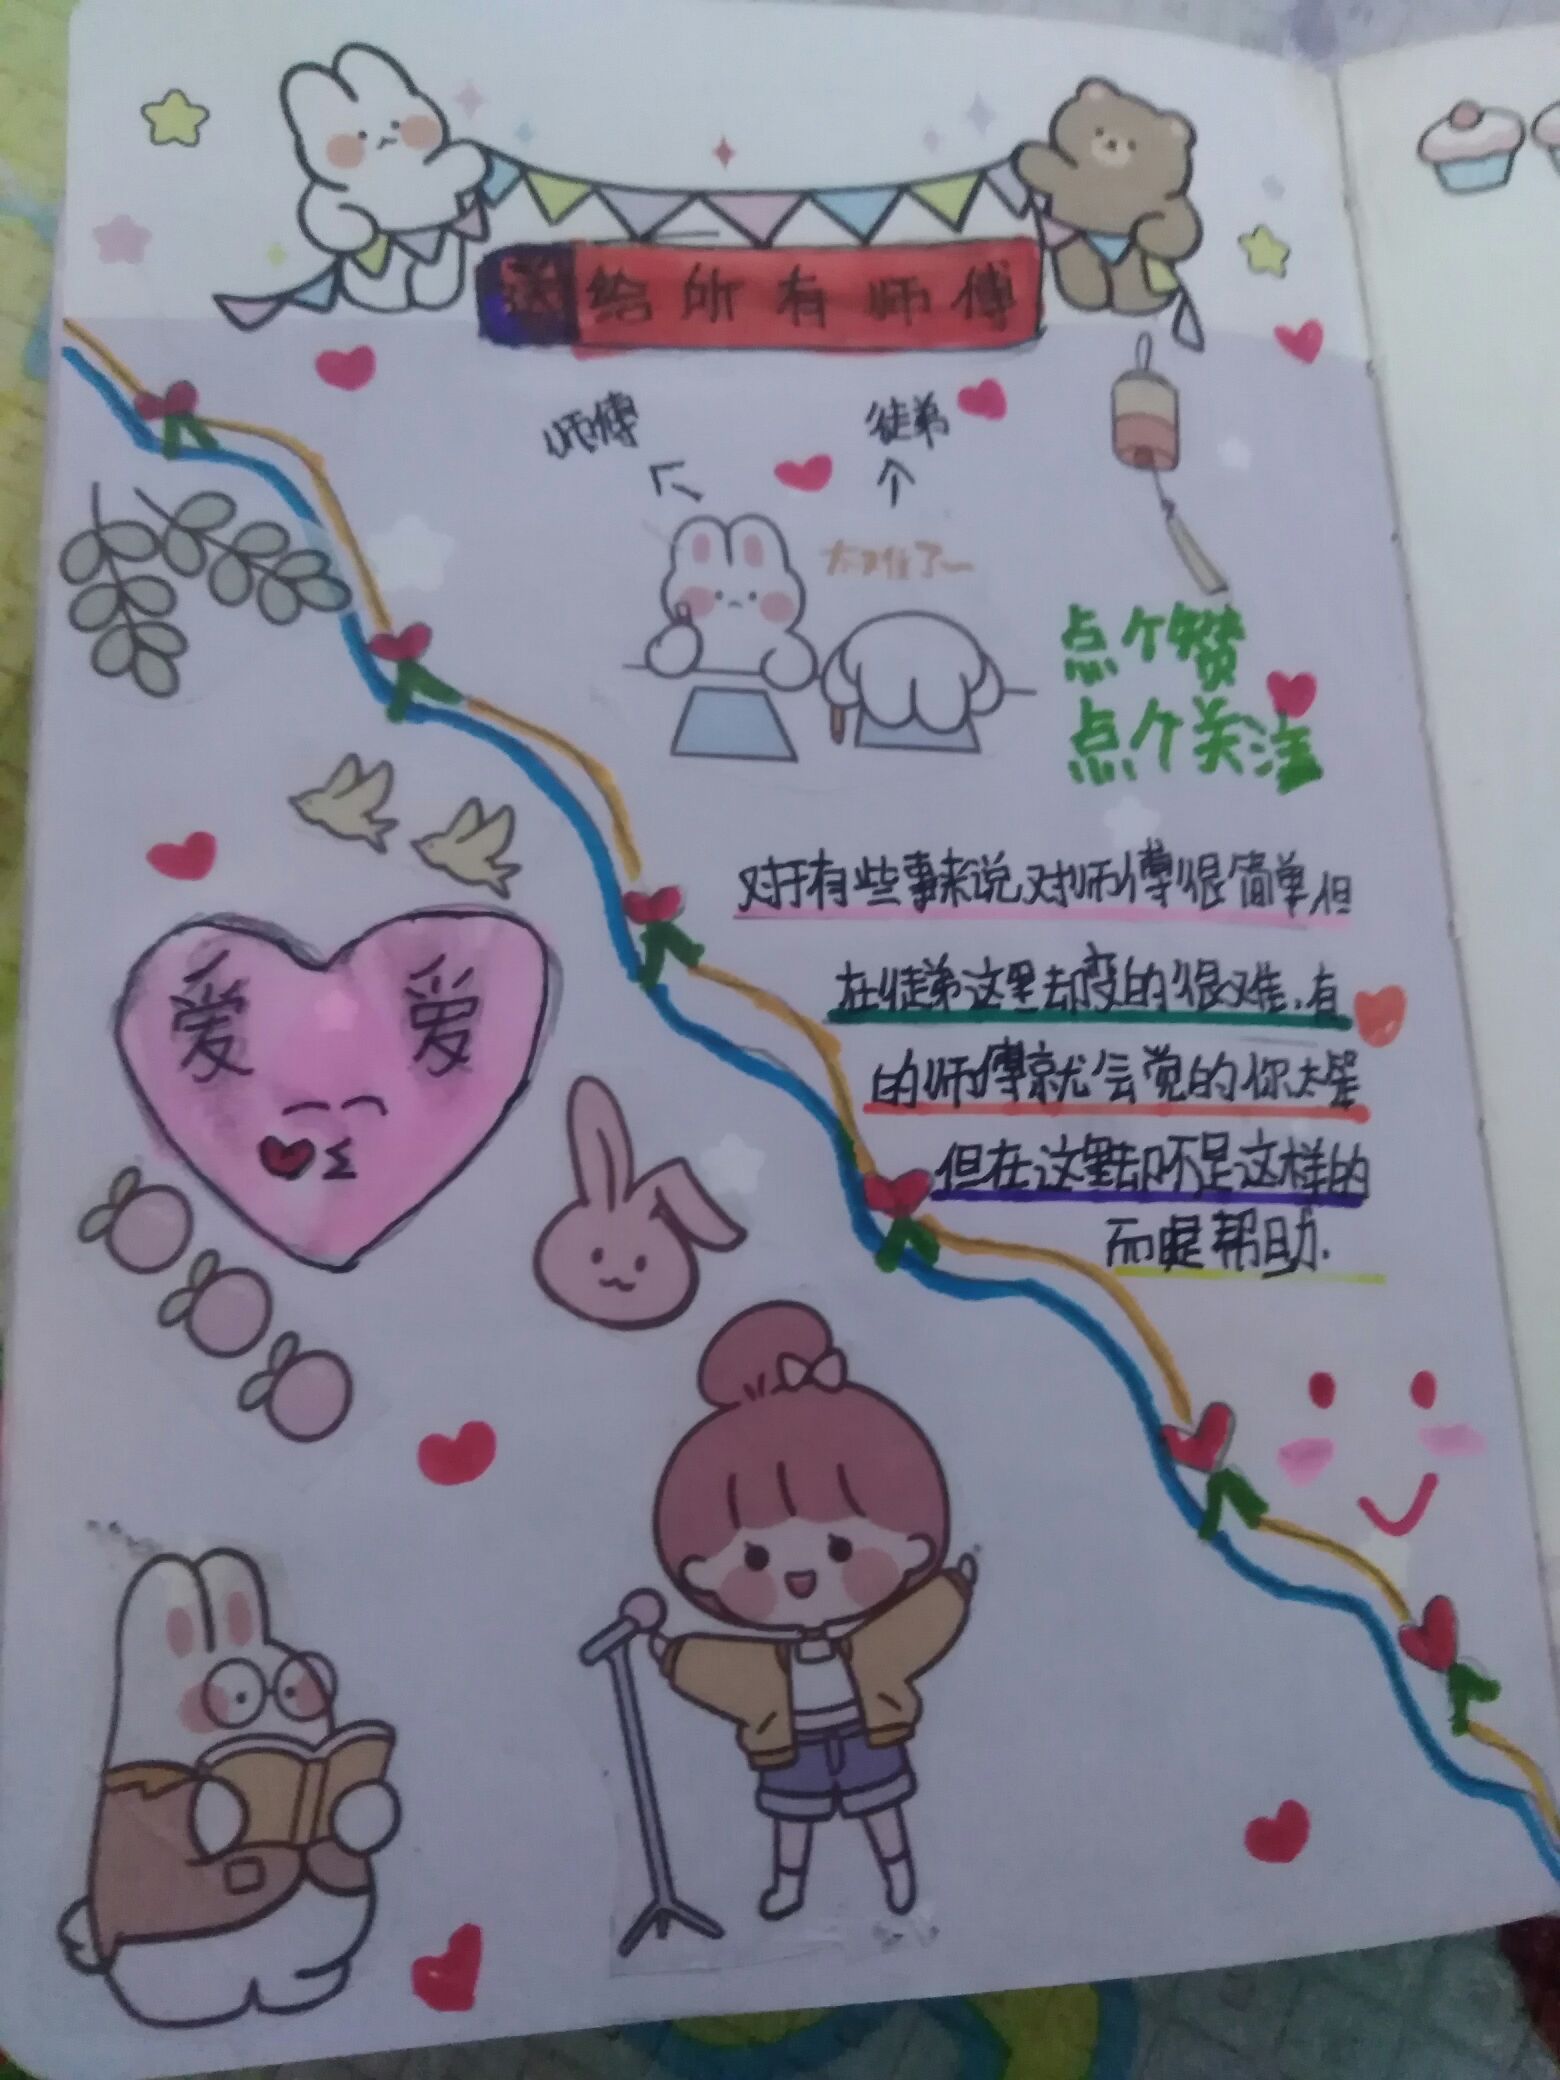 送给所有师傅
师傅
徒弟
太难了
点个赞
点个关注
对于有些事来说,对师傅很简单,但
在徒弟这里却变的很难.有
的师傅就会觉的你太笨
但在这里却不是这样的
而是帮助.
爱 爱